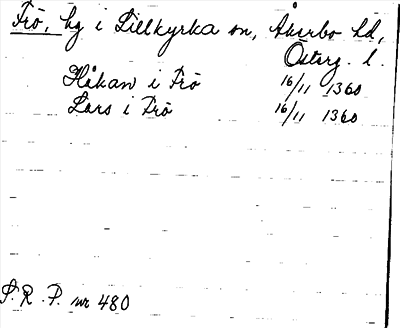 Frö, hg i Lillkyrka sn, Åkerbo hd,
Österg. l.
Håkan i Frö 16/11 1360
Lars i Frö 16/11 1360
S. R. P. nr 480